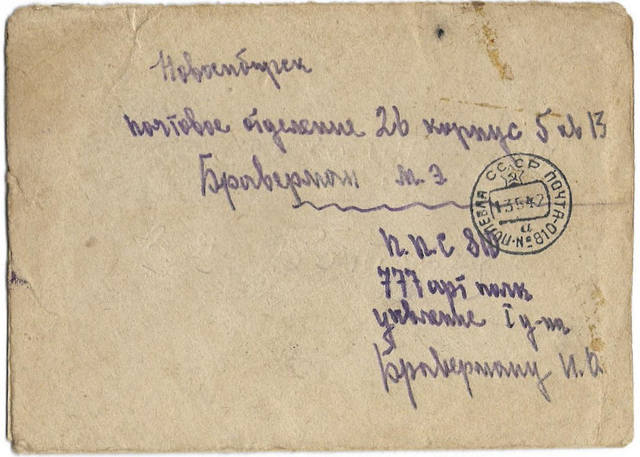 Новосибирск
почтовое отделение 26 корпус 5 кв 13
Браверман М. Э
СССР ПОЛЕВАЯ ПОЧТА-№810
13 5 42
а
П.П.С 810
777 арт полк
управление I д-на
Браверману И.